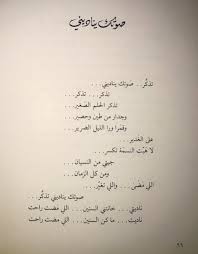 صوتك يناديني
تذكّر... صوتك يناديني...
تذكر... تذكر...
تذكر الحلم الصغير...
وجدار من طين وحصير...
وقمرا ورا الليل الضرير...
على الغدير...
لا هبّت النسمة تكسر...
جيتي من النسيان...
ومن كل الزمان...
اللي مضى... واللي تغيّر...
صوتك يناديني تذكّر...
ناديتي... خانتني السنين... اللي مضت راحت
ناديت... ما كني السنين... اللي مضت راحت